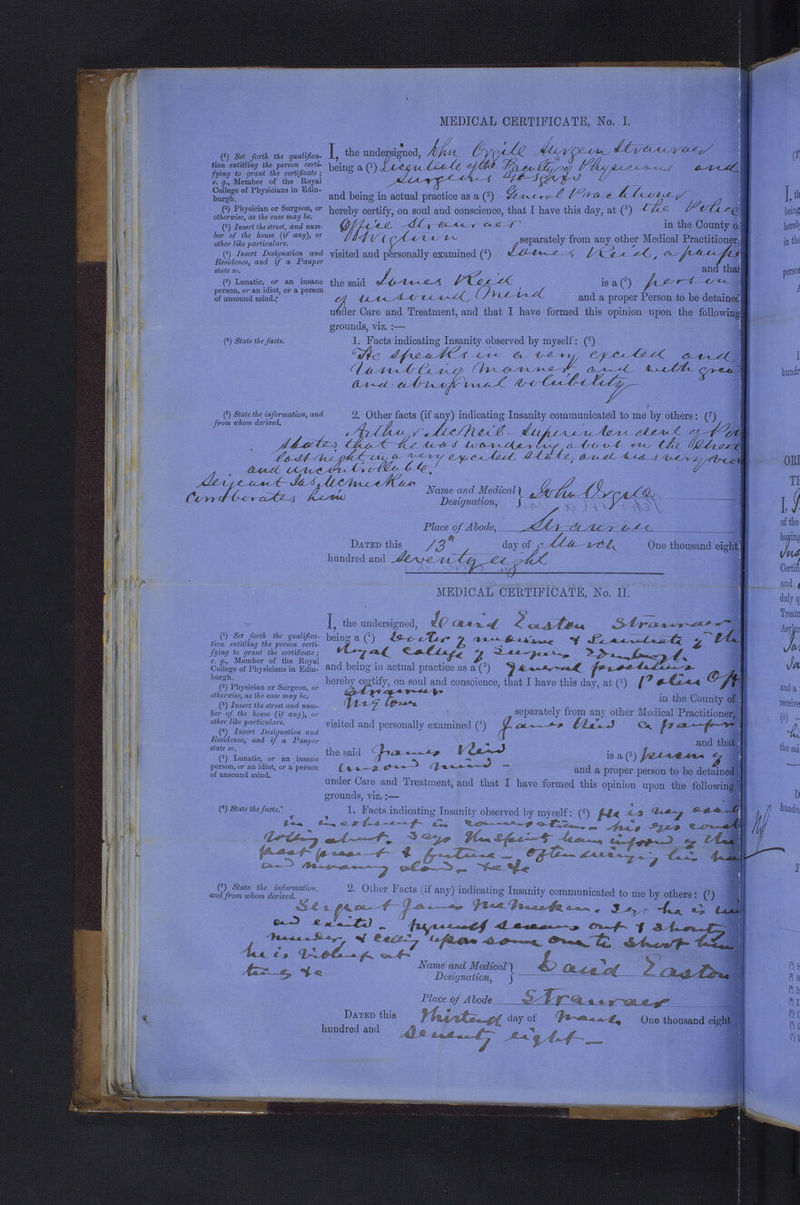 MEDICAL CERTIFICATE, No. I.
(¹) Set forth the qualifica-
tion entitling the person certi-
fying to grant the certificate;
e. g., Member of the Royal
College of Physicians in Edin-
burgh.
(²) Physician or Surgeon, or
otherwise, as the case may be.
(³) Insert the street, and num-
ber of the house (if any), or
other like particulars.
(⁴) Insert Designation and
Residence, and if a Pauper
state so.
(⁵) Lunatic, or an insane
person, or an idiot, or a person
of unsound mind.
(⁶) State the facts.
(⁷) State the information, and
from whom derived.
I, the undersigned, John Orgill Surgeon Stranraer
being a (¹) Licentiate of the Faculty of Physicians and
Surgeons Glasgow
and being in actual practice as a (²) General Practitioner
hereby certify, on soul and conscience, that I have this day, at (³) the Police
Office Stranraer in the County o
Wigtown separately from any other Medical Practitioner,
visited and personally examined (⁴) James Reid, a paupe
and that
the said James Reid is a (⁵) person
of unsound mind and a proper Person to be detained
under Care and Treatment, and that I have formed this opinion upon the following
grounds, viz. :—
1. Facts indicating Insanity observed by myself: (⁶)
He speaks in a very excited and
rambling manner and with grea
and abnormal volubility
2. Other facts (if any) indicating Insanity communicated to me by others: (⁷)
Arthur McNeil Superintendent of Pol
states that he was wandering about on the Street
last night in a very excited state, and was very
and uncontrollable.
Serjeant Jas. McMeekan
Corroborates him
Name and Medical Designation, John Orgill
Place of Abode, Stranraer
DATED this 13th day of March One thousand eight
hundred and Seventy eight
MEDICAL CERTIFICATE, No. II.
(¹) Set forth the qualifica-
tion entitling the person certi-
fying to grant the certificate;
e. g., Member of the Royal
College of Physicians in Edin-
burgh.
(²) Physician or Surgeon, or
otherwise, as the case may be.
(³) Insert the street and num-
ber of the house (if any), or
other like particulars.
(⁴) Insert Designation and
Residence, and if a Pauper
state so.
(⁵) Lunatic, or an insane
person, or an idiot, or a person
of unsound mind.
(⁶) State the facts.
(⁷) State the information,
and from whom derived.
I, the undersigned, David Easton Stranraer
being a (¹) Doctor of medicine & Licentiate of the
Royal College of Surgeons Edinburgh
and being in actual practice as a (²) General practitioner
hereby certify, on soul and conscience, that I have this day, at (³) Police Off
Stranraer in the County of
Wigtown separately from any other Medical Practitioner,
visited and personally examined (⁴) James Reid a pauper
and that
the said James Reid is a (⁵) person of
unsound mind - and a proper person to be detained
under Care and Treatment, and that I have formed this opinion upon the following
grounds, viz. :—
1. Facts indicating Insanity observed by myself: (⁶) He is very
is incoherent in conversation - his eyes
rolling about. Says the spirits have informed of the
past present & future - often
and moaning aloud - &c &c
2. Other Facts (if any) indicating Insanity communicated to me by others: (⁷)
Sergeant James McMeekan. Says he is
and excited - out & shouts
murder & calling upon some one to shoot him
he is violent at
times &c
Name and Medical Designation, David Easton
Place of Abode Stranraer
DATED this Thirteenth day of March One thousand eight
hundred and Seventy eight —